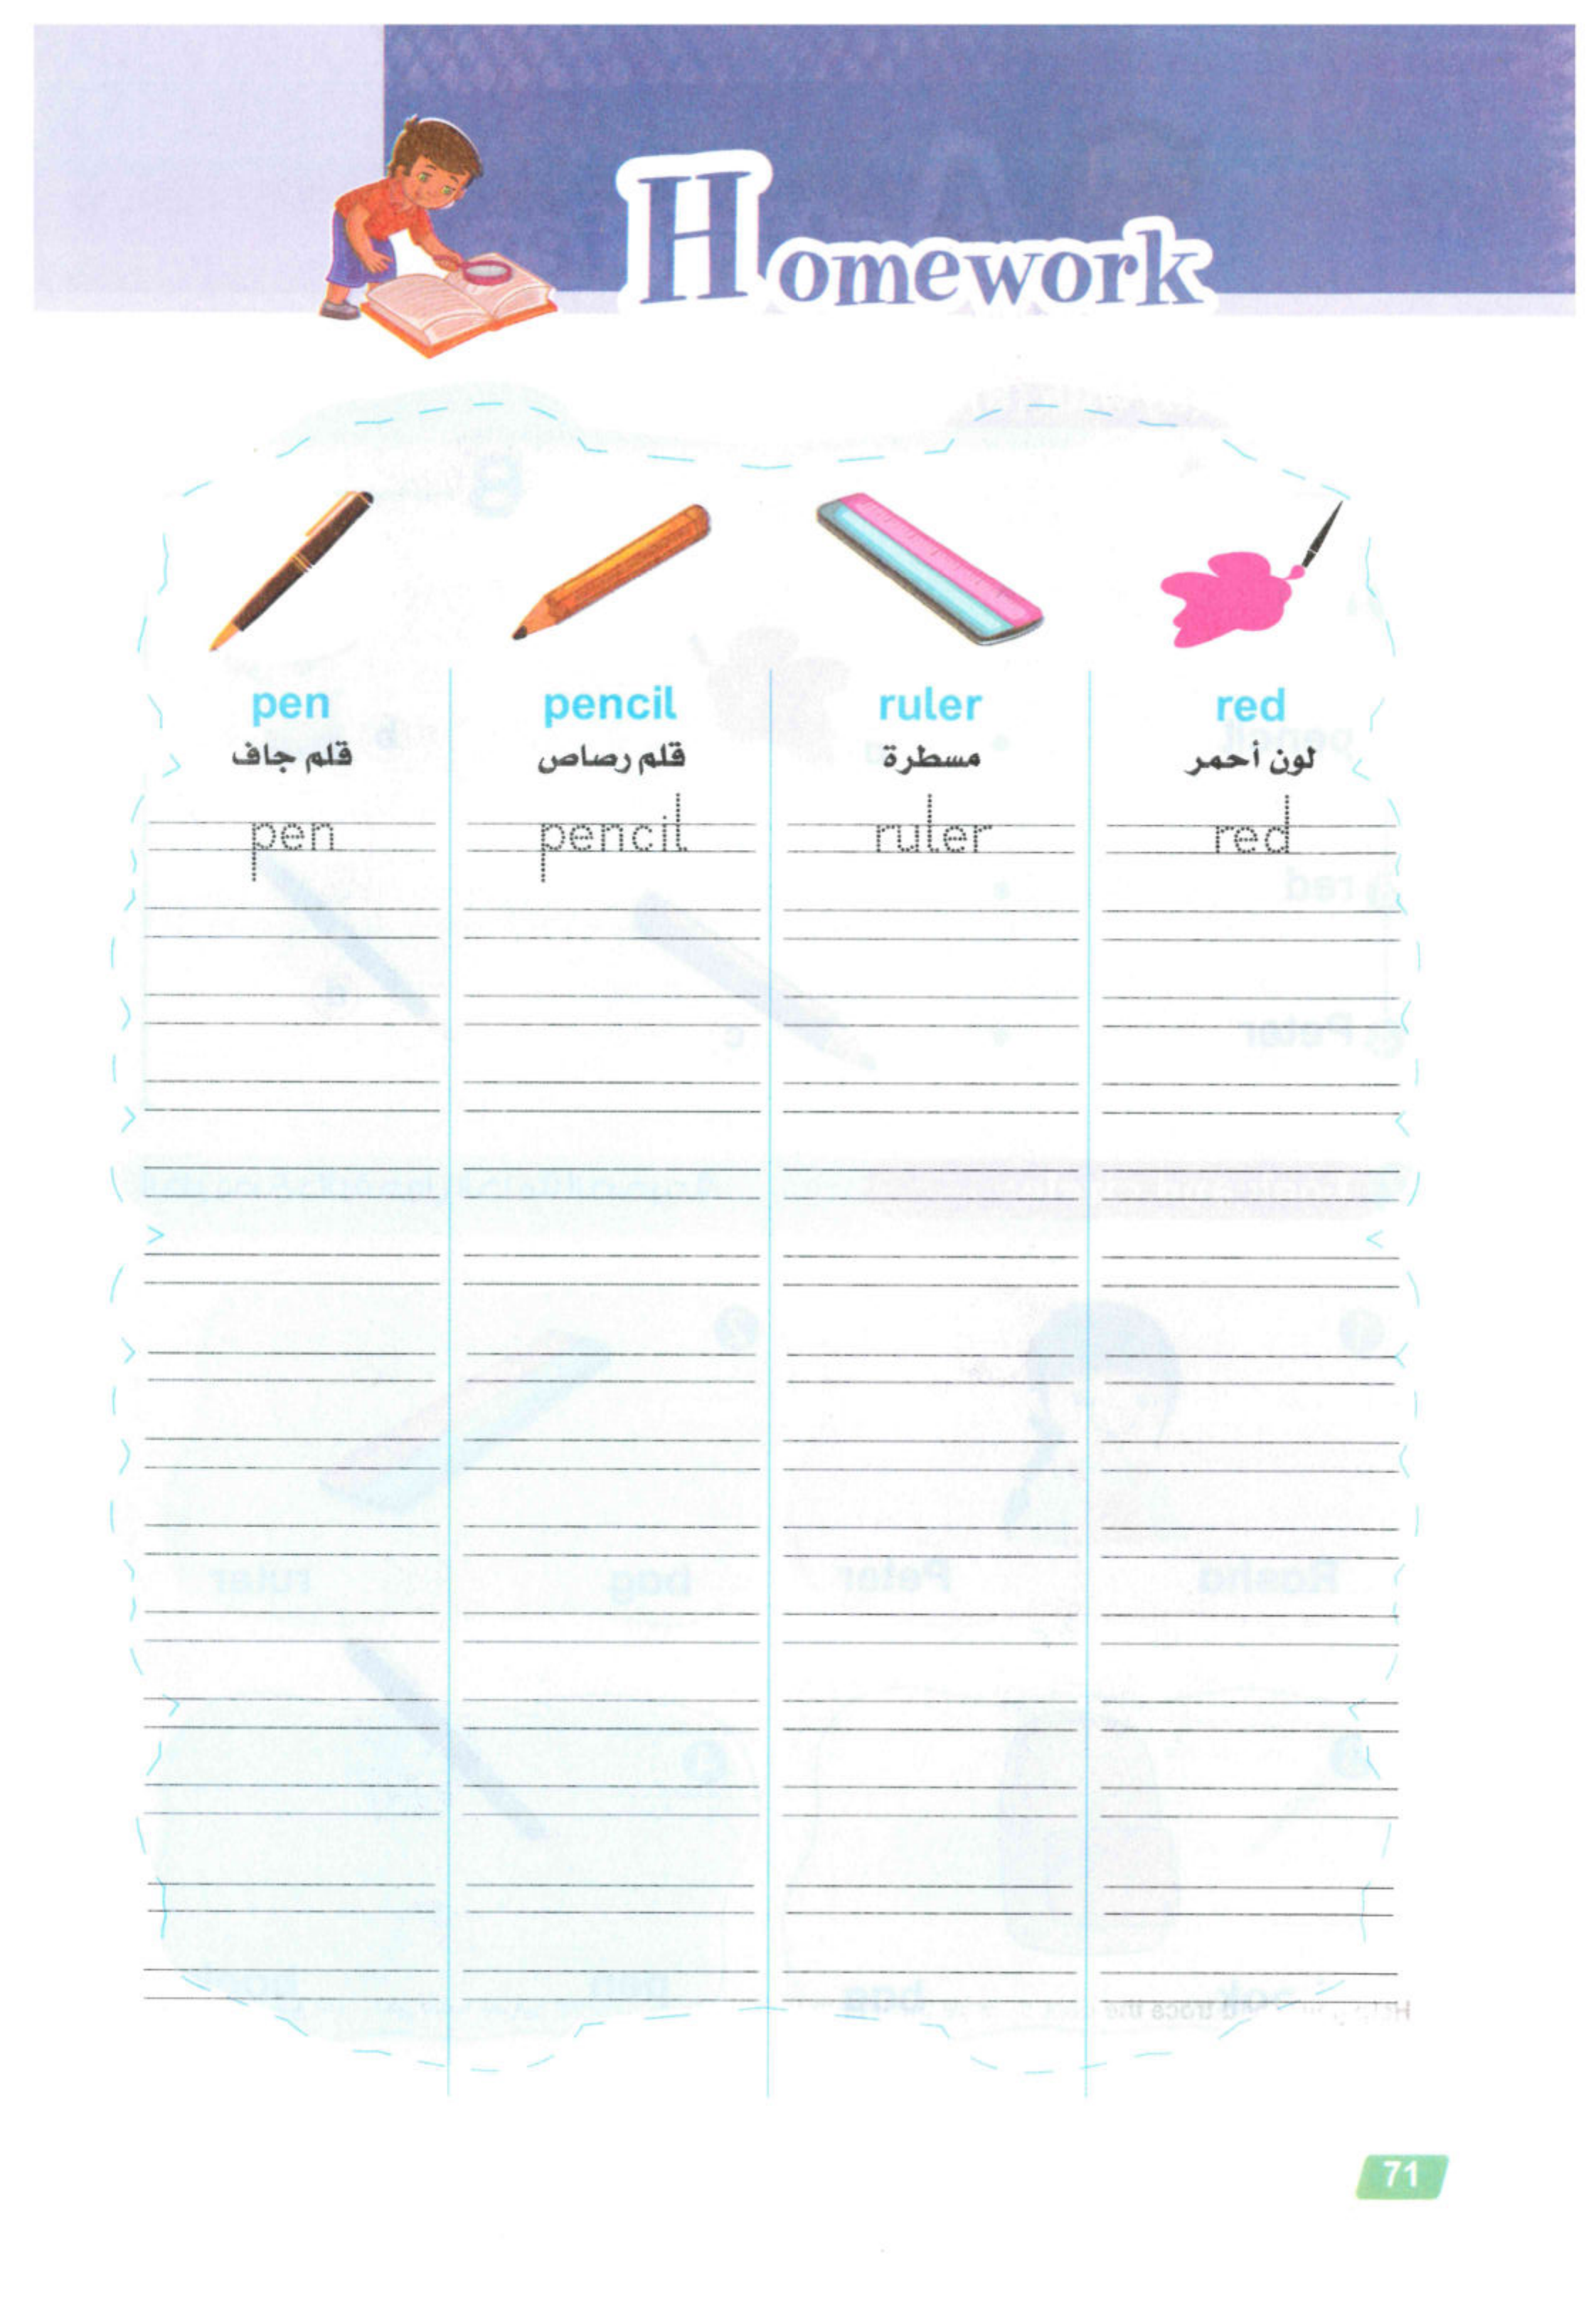 Homework
pen pencil ruler red
قلم جاف قلم رصاص مسطرة لون أحمر
pen pencil ruler red
71